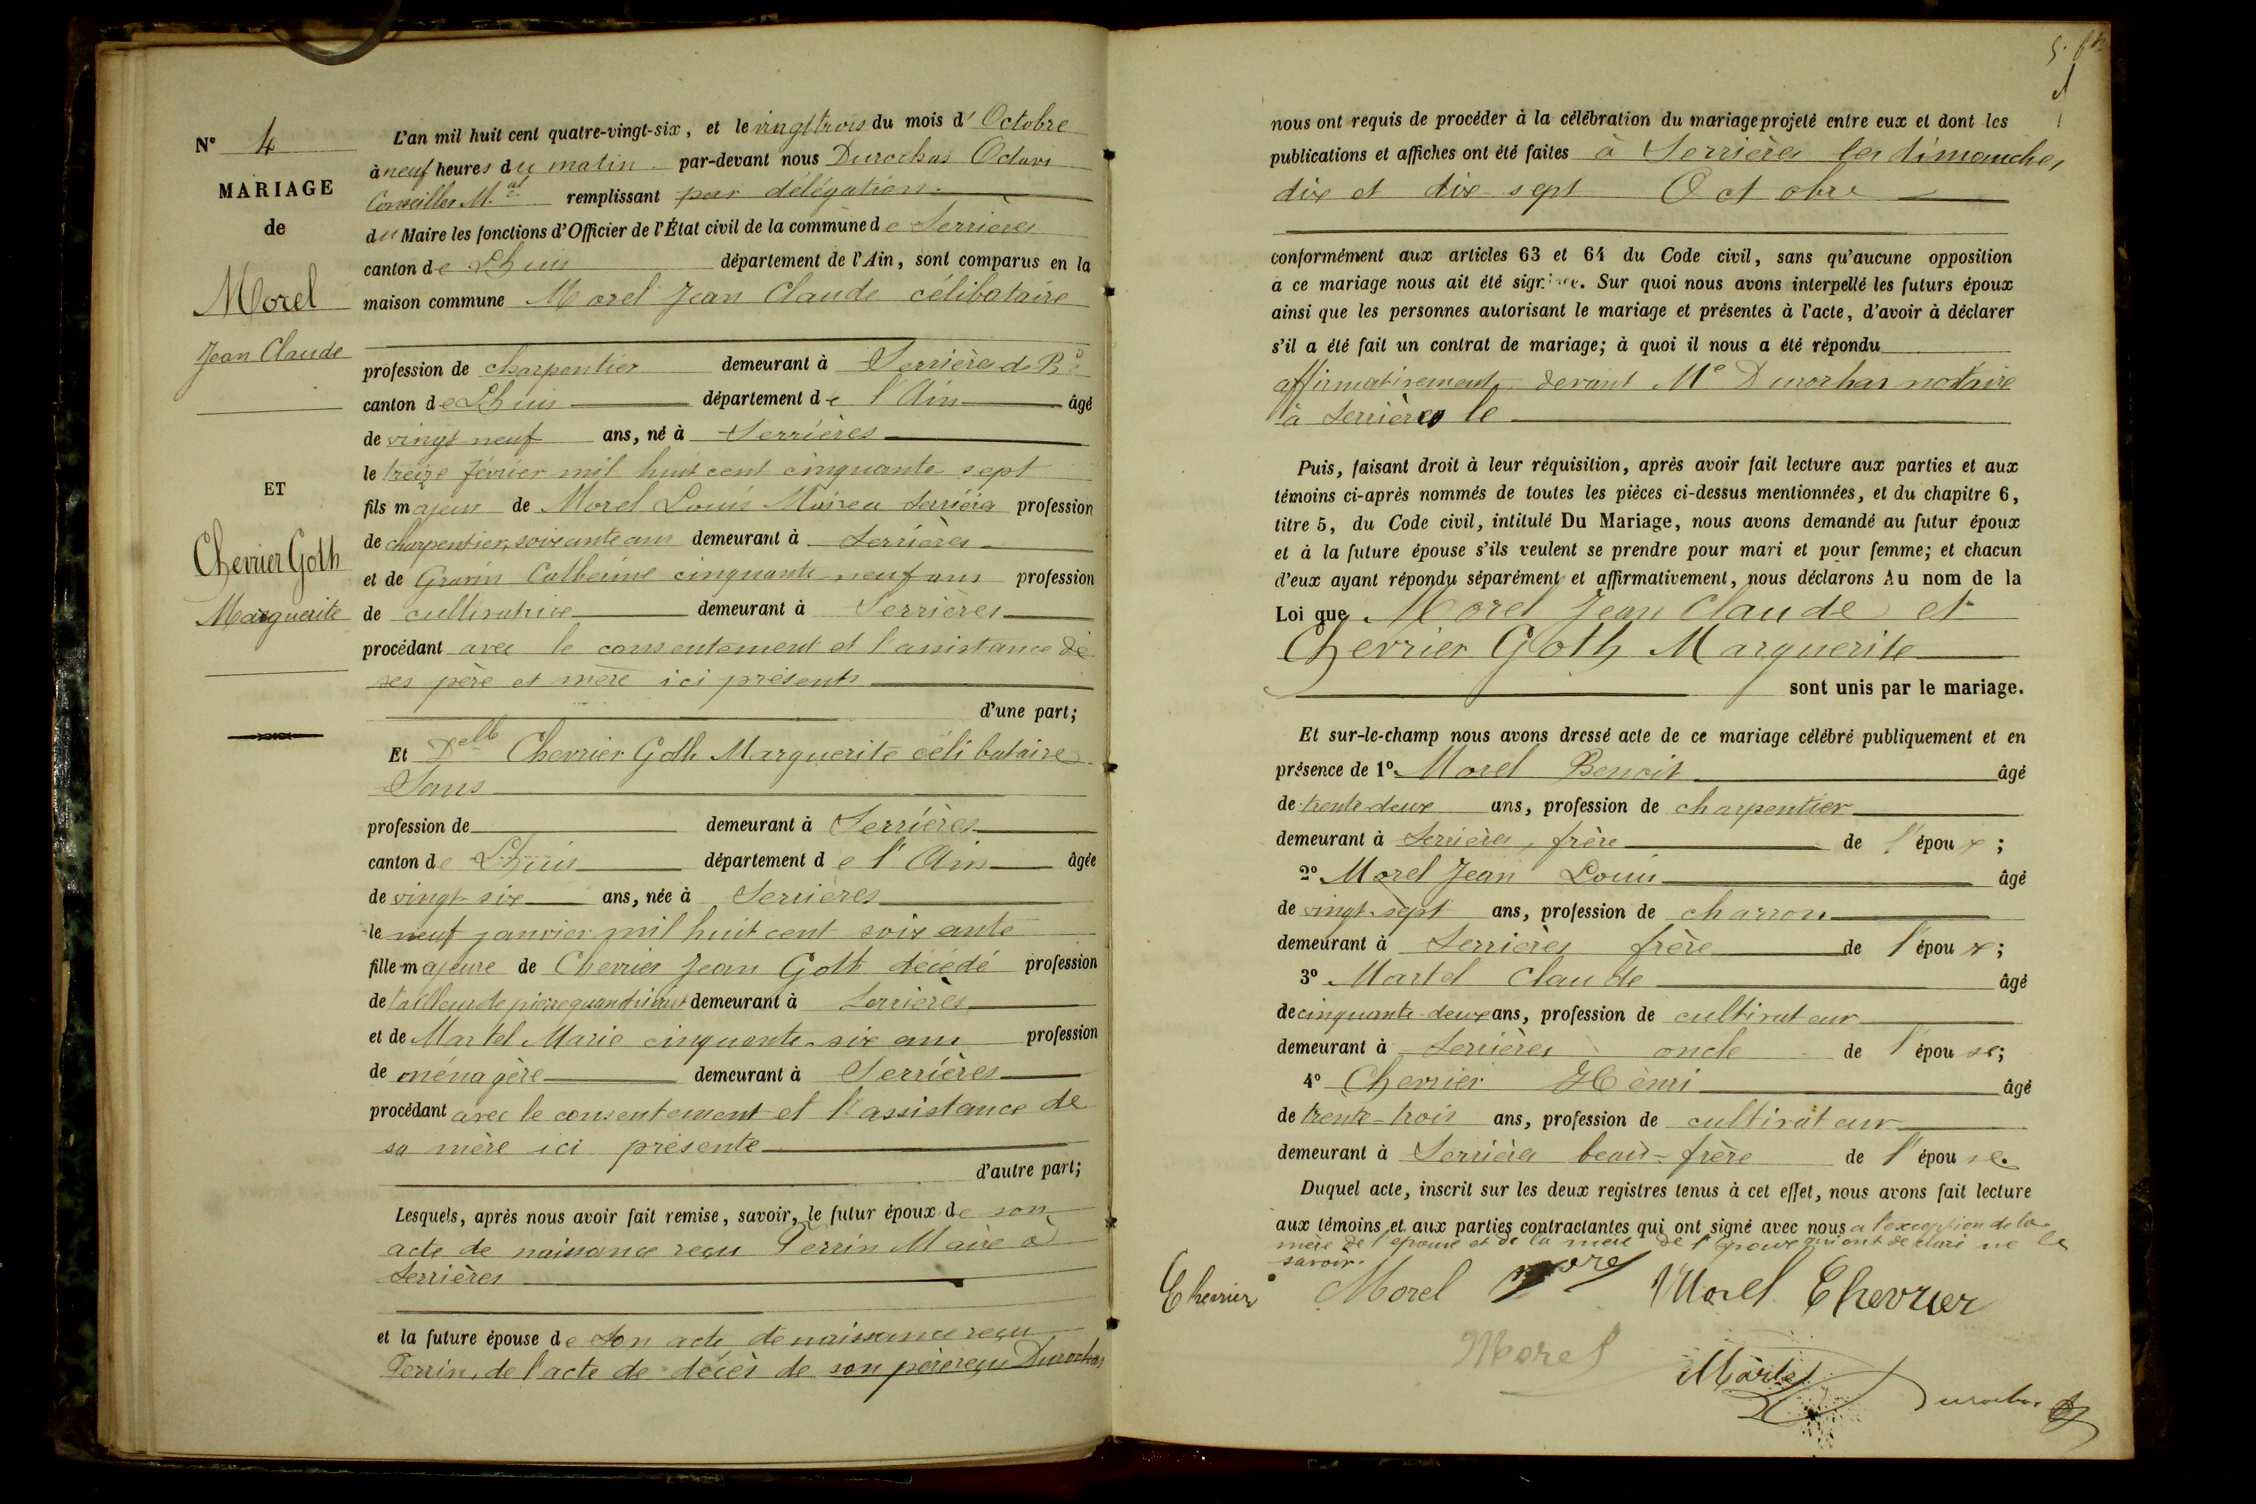 N° 4
MARIAGE
de
Morel
Jean Claude
ET
Chevrier Goth
Marguerite
L'an mil huit cent quatre-vingt-six, et le vingt trois du mois d'Octobre
à neuf heures du matin par-devant nous Durochas Octave
Conseiller M.al remplissant par délégation
du Maire les fonctions d'Officier de l'État civil de la commune de Serrières
canton de Lhuis département de l'Ain, sont comparus en la
maison commune Morel Jean Claude célibataire
profession de charpentier demeurant à Serrières de B.d
canton de Lhuis département de l'Ain âgé
de vingt neuf ans, né à Serrières
le treize février mil huit cent cinquante sept
fils majeur de Morel Louis Maire à Serrières profession
de charpentier, soixante ans demeurant à Serrières
et de Gravin Catherine cinquante neuf ans profession
de cultivatrice demeurant à Serrières
procédant avec le consentement et l'assistance de
ses père et mère ici présents
d'une part;
Et Delle Chevrier Goth Marguerite célibataire
Sans
profession de demeurant à Serrières
canton de Lhuis département de l'Ain âgée
de vingt-six ans, née à Serrières
le neuf janvier mil huit cent soixante
fille majeure de Chevrier Jean Goth décédé profession
de tailleur de pierre quand vivant demeurant à Serrières
et de Martel Marie cinquante-six ans profession
de ménagère demeurant à Serrières
procédant avec le consentement et l'assistance de
sa mère ici présente
d'autre part;
Lesquels, après nous avoir fait remise, savoir, le futur époux de son
acte de naissance reçu Perrin Maire à
Serrières
et la future épouse de son acte de naissance reçu
Perrin, de l'acte de décès de son père reçu Durochas
nous ont requis de procéder à la célébration du mariage projeté entre eux et dont les
publications et affiches ont été faites à Serrières les dimanches
dix et dix sept Octobre
conformément aux articles 63 et 64 du Code civil, sans qu'aucune opposition
à ce mariage nous ait été signifiée. Sur quoi nous avons interpellé les futurs époux
ainsi que les personnes autorisant le mariage et présentes à l'acte, d'avoir à déclarer
s'il a été fait un contrat de mariage; à quoi il nous a été répondu
affirmativement, devant Me Durochas notaire
à Serrières le
Puis, faisant droit à leur réquisition, après avoir fait lecture aux parties et aux
témoins ci-après nommés de toutes les pièces ci-dessus mentionnées, et du chapitre 6,
titre 5, du Code civil, intitulé Du Mariage, nous avons demandé au futur époux
et à la future épouse s'ils veulent se prendre pour mari et pour femme; et chacun
d'eux ayant répondu séparément et affirmativement, nous déclarons Au nom de la
Loi que Morel Jean Claude et
Chevrier Goth Marguerite
sont unis par le mariage.
Et sur-le-champ nous avons dressé acte de ce mariage célébré publiquement et en
présence de 1° Morel Benoit âgé
de trente-deux ans, profession de charpentier
demeurant à Serrières, frère de l'époux;
2° Morel Jean Louis âgé
de vingt-sept ans, profession de charron
demeurant à Serrières frère de l'époux;
3° Martel Claude âgé
de cinquante-deux ans, profession de cultivateur
demeurant à Serrières oncle de l'épouse;
4° Chevrier Hènri âgé
de trente-trois ans, profession de cultivateur
demeurant à Serrières beau-frère de l'épouse.
Duquel acte, inscrit sur les deux registres tenus à cet effet, nous avons fait lecture
aux témoins et aux parties contractantes qui ont signé avec nous à l'exception de la
mère de l'épouse et de la mère de l'époux qui ont déclaré ne le
savoir.
Chevrier Morel Morel Morel Chevrier
Morel Martel Durochas